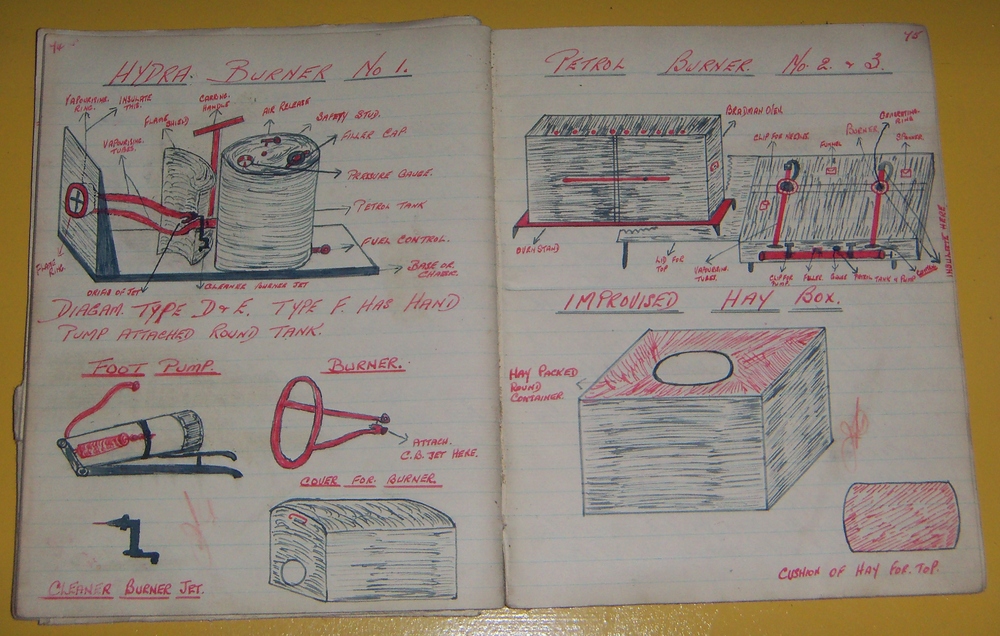 74
HYDRA. BURNER No 1.
VAPOURISING
RING.
INSULATE
THIS.
CARRING.
HANDLE
AIR RELEASE
FLAME
SHIELD
SAFETY STUD.
FILLER CAP.
VAPOURISING.
TUBES.
PRESSURE GAUGE.
PETROL TANK
FUEL CONTROL.
FLAME
RING.
BASE OR
ORIFIS OF JET
CLEANER BURNER JET
DIAGAM. TYPE D & E. TYPE F. HAS HAND
PUMP ATTACHED ROUND TANK.
FOOT PUMP.
BURNER.
ATTACH.
C.B. JET HERE.
COVER FOR BURNER.
CLEANER BURNER JET.
75
PETROL BURNER No 2. & 3.
BRADMAN OVEN
CLIP FOR NEEDLE
FUNNEL
BURNER
GENERATING
RING
SPANNER
INSULATE HERE
OVEN STAND
LID FOR
TOP
VAPOURISING
TUBES
CLIP FOR
PUMP.
FILLER
GAUGE
PETROL TANK & PUMP
IMPROVISED HAY BOX.
HAY PACKED
ROUND
CONTAINER.
CUSHION OF HAY FOR TOP.